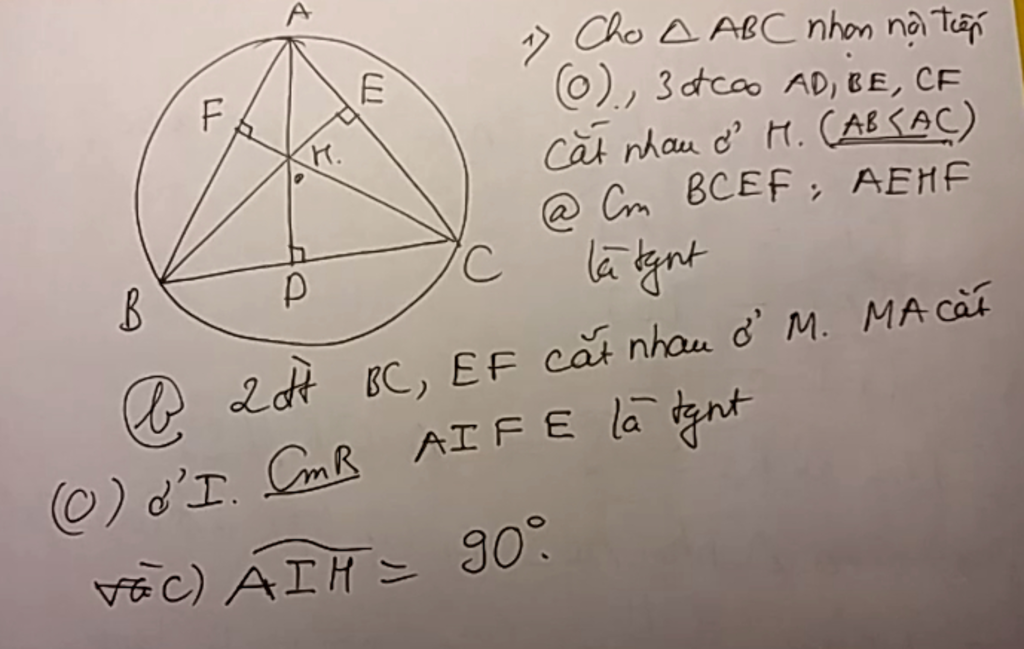 A
F
E
H.
B
D
C
1) Cho △ ABC nhọn nội tiếp
(O), 3 đcao AD, BE, CF
cắt nhau ở H. (AB < AC)
ⓐ Cm BCEF; AEHF
là tgnt
ⓑ 2 đt BC, EF cắt nhau ở M. MA cắt
(O) ở I. CmR AIFE là tgnt
và c) AIH = 90°.